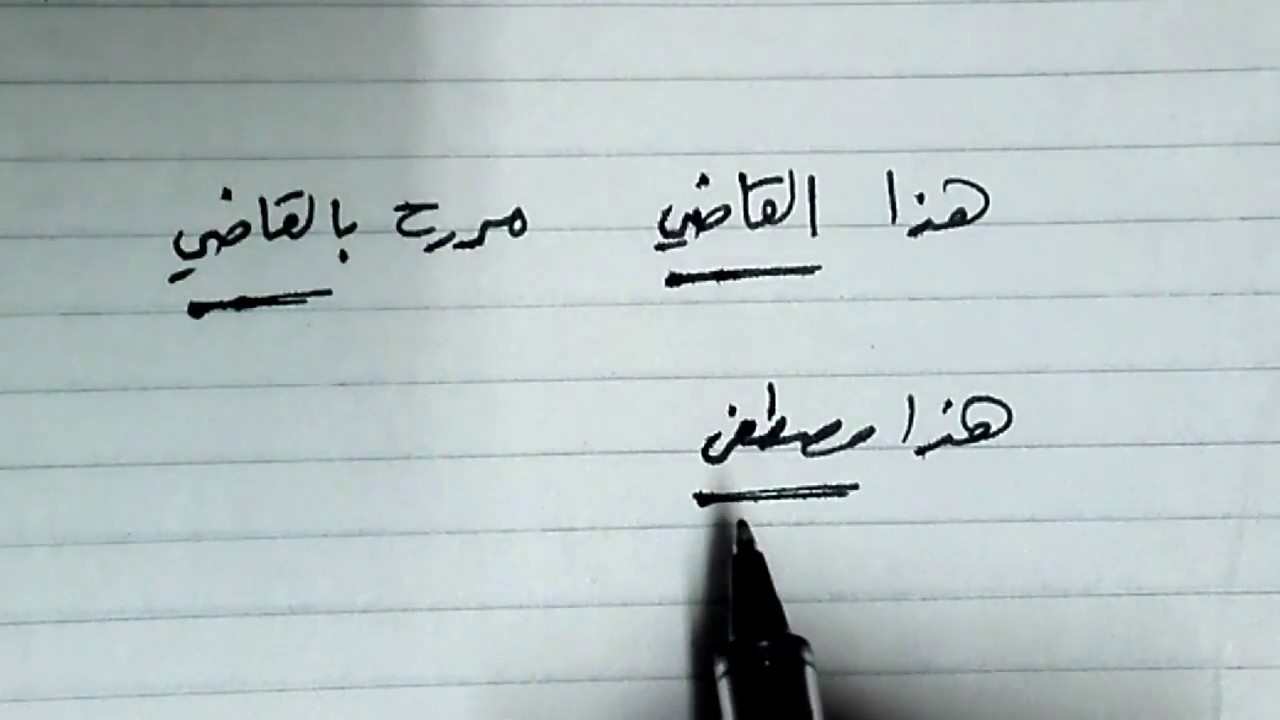 هذا القاضي مررت بالقاضي
هذا مصطفى